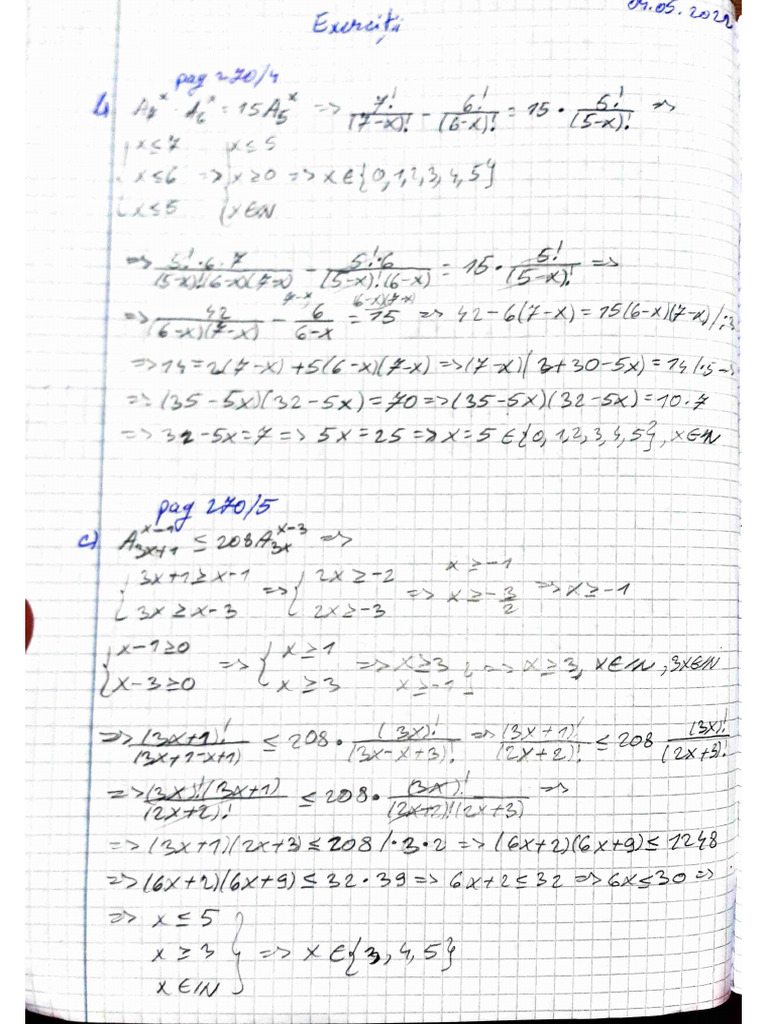 04.05.2022
Exerciții
pag 270/4
b) A₇ˣ - A₆ˣ = 15A₅ˣ => 7!/(7-x)! - 6!/(6-x)! = 15 · 5!/(5-x)! =>
{x≤7 {x≤5
{x≤6 => {x≥0 => x∈{0,1,2,3,4,5}
{x≤5 {x∈ℕ
=> 5!·6·7/(5-x)!(6-x)(7-x) - 5!·6/(5-x)!(6-x) = 15 · 5!/(5-x)! =>
=> 42/(6-x)(7-x) - ⁷⁻ˣ⁾ 6/(6-x) = ⁽⁶⁻ˣ⁾⁽⁷⁻ˣ⁾ 15 => 42-6(7-x) = 15(6-x)(7-x) /:3
=> 14 = 2(7-x) + 5(6-x)(7-x) => (7-x)(2+30-5x) = 14 /·5 =>
=> (35-5x)(32-5x) = 70 => (35-5x)(32-5x) = 10·7
=> 32-5x = 7 => 5x = 25 => x = 5 ∈ {0,1,2,3,4,5}, x∈ℕ
pag 270/5
c) A₃ₓ₊₁ˣ⁻¹ ≤ 208A₃ₓˣ⁻³ =>
{3x+1≥x-1 => {2x≥-2 => x≥-1
{3x≥x-3 {2x≥-3 x≥-3/2 => x≥-1
{x-1≥0 => {x≥1 => x≥3 } => x≥3, x∈ℕ, 3x∈ℕ
{x-3≥0 {x≥3 x≥-1
=> (3x+1)!/(3x+1-x+1)! ≤ 208 · (3x)!/(3x-x+3)! => (3x+1)!/(2x+2)! ≤ 208 (3x)!/(2x+3)!
=> (3x)!(3x+1)/(2x+2)! ≤ 208 · (3x)!/(2x+2)!(2x+3) =>
=> (3x+1)(2x+3) ≤ 208 /·3·2 => (6x+2)(6x+9) ≤ 1248
=> (6x+2)(6x+9) ≤ 32·39 => 6x+2 ≤ 32 => 6x ≤ 30 =>
=> x ≤ 5
x ≥ 3 } => x∈{3,4,5}
x∈ℕ